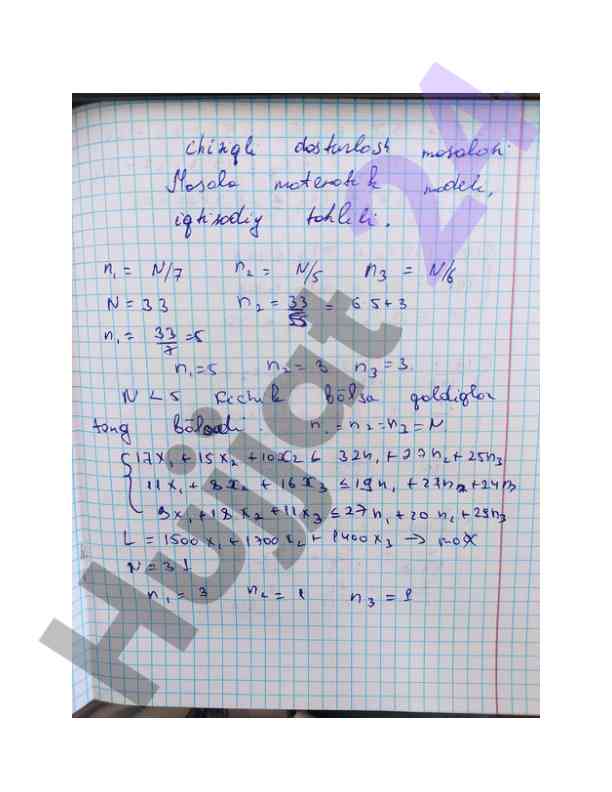 chiziqli dasturlash masalasi.
Masala matematik modeli,
iqtisodiy tahlili.
n₁ = N/7 n₂ = N/5 n₃ = N/6
N = 33 n₂ = 33/55 = 6 5+3
n₁ = 33/7 = 5
n₁ = 5 n₂ = 3 n₃ = 3
N < 5 kichik bo'lsa qoldiqlar
teng bo'ladi. n₁ = n₂ = n₃ = N
17x₁ + 15x₂ + 10x₂ ≤ 32n₁ + 27n₂ + 25n₃
11x₁ + 8x₂ + 16x₃ ≤ 19n₁ + 27n₂ + 24n₃
9x₁ + 18x₂ + 11x₃ ≤ 27n₁ + 20n₂ + 29n₃
L = 1500x₁ + 1700x₂ + 1400x₃ → max
N = 31
n₁ = 3 n₂ = 1 n₃ = 1
Hujjat 24